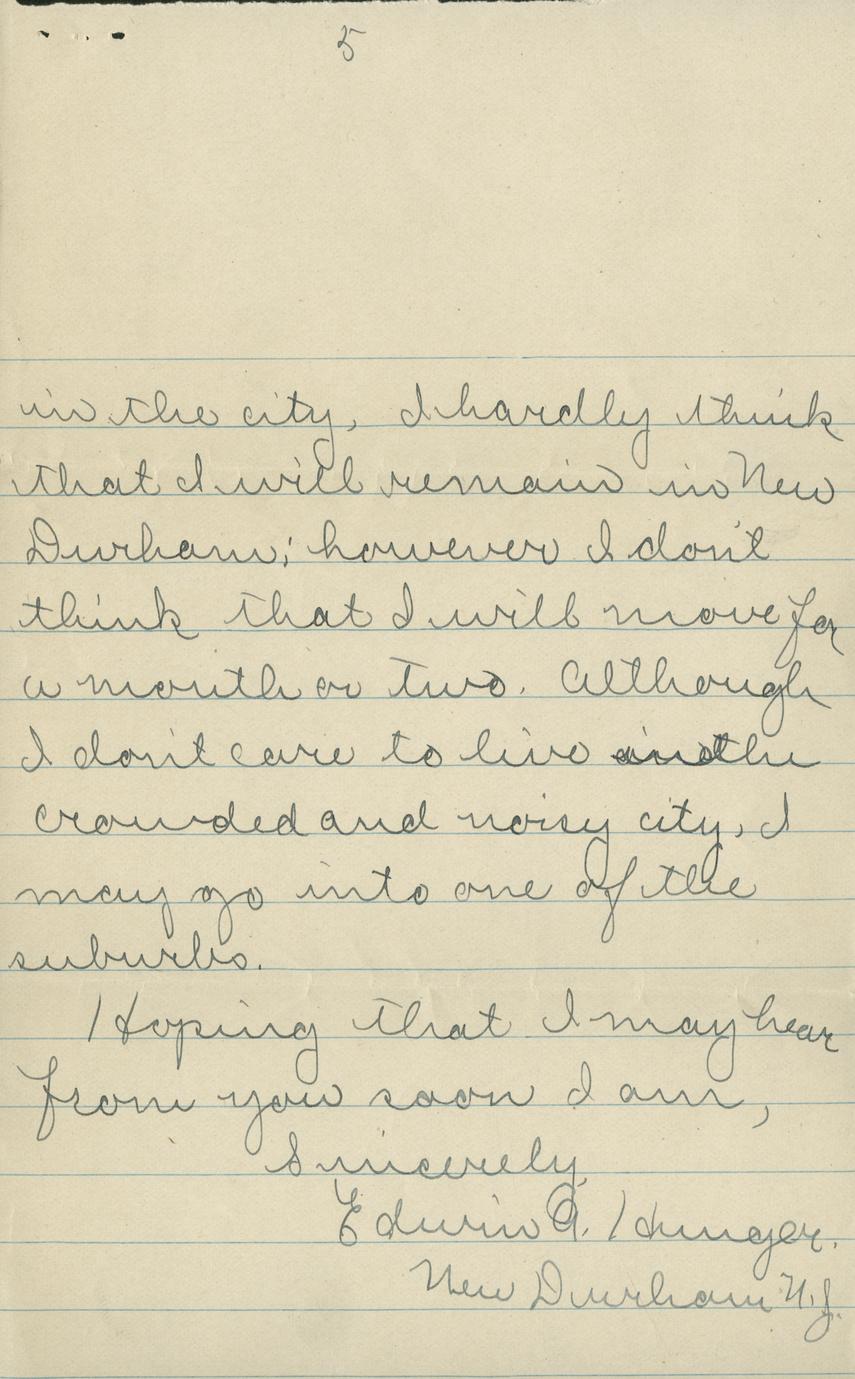 5
in the city, I hardly think
that I will remain in New
Durham; however I don't
think that I will move for
a month or two. Although
I don't care to live in the
crowded and noisy city, I
may go into one of the
suburbs.
Hoping that I may hear
from you soon I am,
Sincerely,
Edwin A. Hunger.
New Durham N.J.